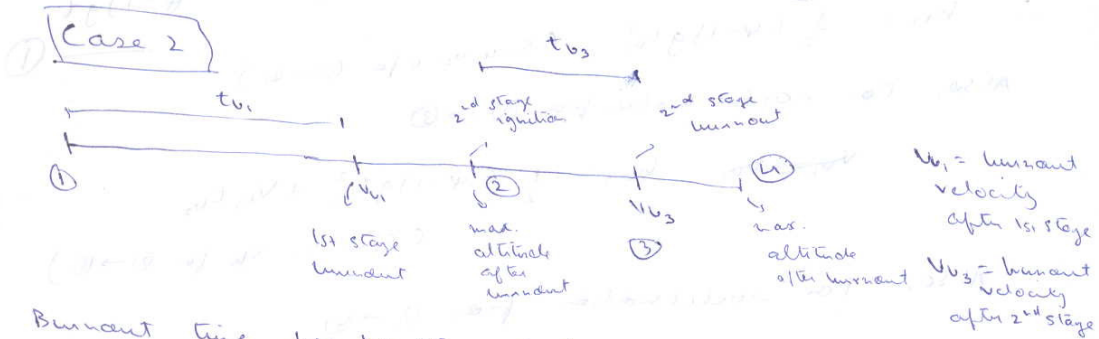 Case 2
t_b3
t_b1
2nd stage
ignition
2nd stage
burnout
①
V_b1
②
V_b3
③
④
1st stage
burnout
max.
altitude
after
burnout
max.
altitude
after burnout
V_b1 = burnout
velocity
after 1st stage
V_b3 = burnout
velocity
after 2nd stage
Burnout time